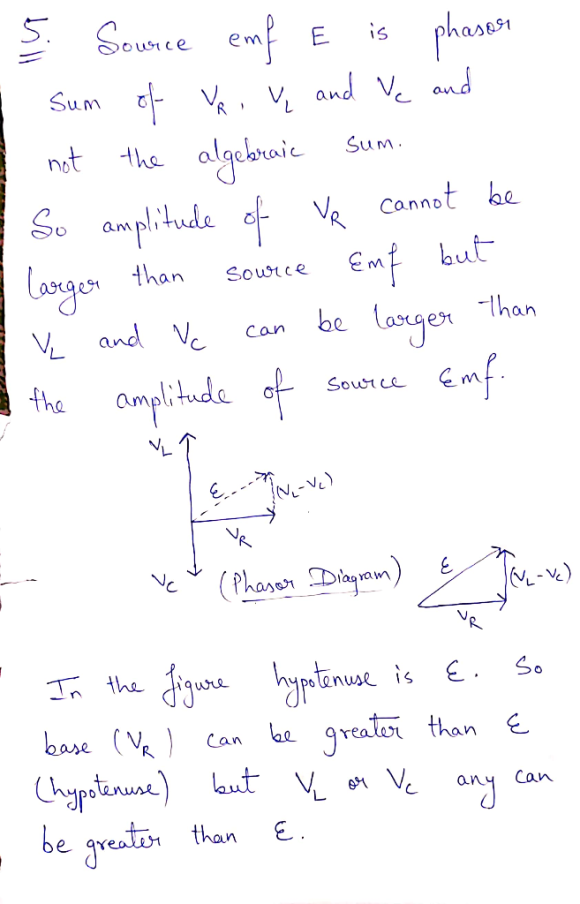 5. Source emf E is phasor
sum of V_R, V_L and V_C and
not the algebraic sum.
So amplitude of V_R cannot be
larger than source Emf but
V_L and V_C can be larger than
the amplitude of source Emf.
V_L
ε (V_L-V_C)
V_R
V_C (Phasor Diagram) ε (V_L-V_C)
V_R
In the figure hypotenuse is ε. So
base (V_R) can be greater than ε
(hypotenuse) but V_L or V_C any can
be greater than ε.